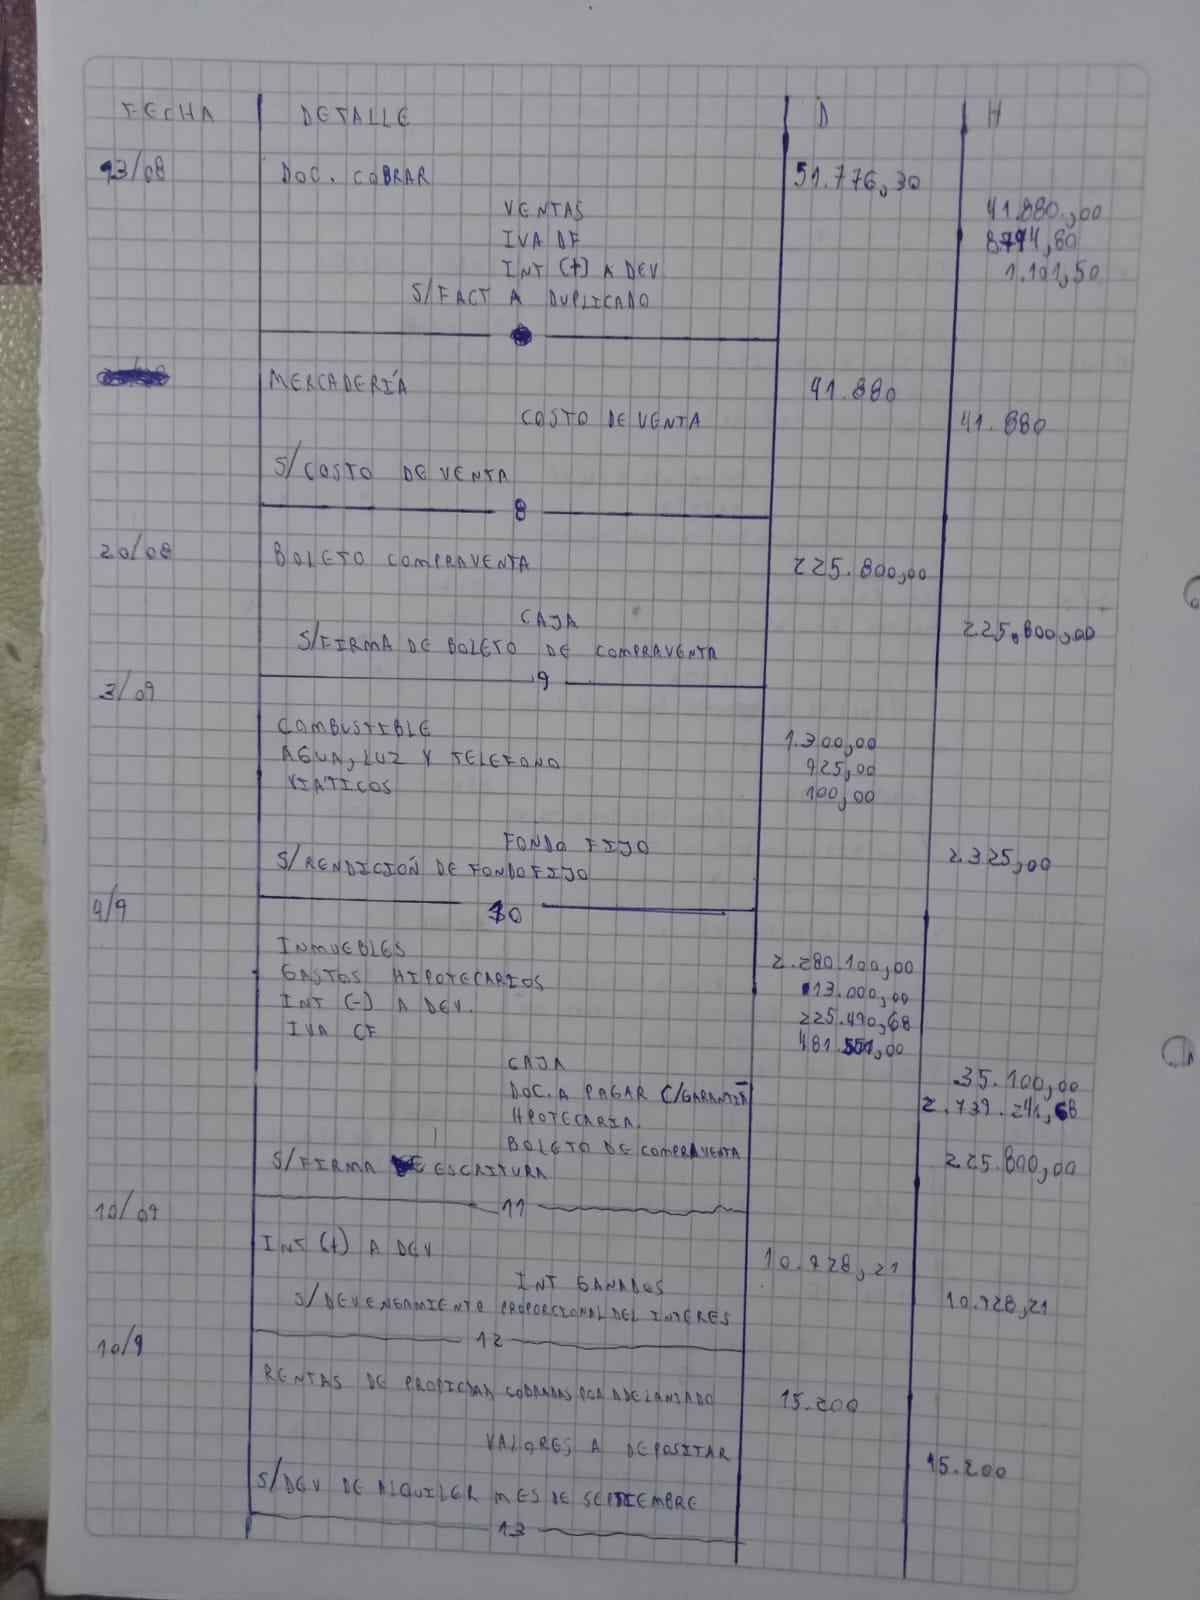 FECHA DETALLE D H
13/08 DOC. COBRAR 51.776,30
VENTAS 41.880,00
IVA DF 8794,80
INT (+) A DEV 1.101,50
S/FACT A DUPLICADO
MERCADERÍA 41.880
COSTO DE VENTA 41.880
S/COSTO DE VENTA
8
20/08 BOLETO COMPRAVENTA 225.800,00
CAJA 225.800,00
S/FIRMA DE BOLETO DE COMPRAVENTA
9
3/09
COMBUSTIBLE 1.300,00
AGUA, LUZ Y TELEFONO 925,00
VIATICOS 100,00
FONDO FIJO 2.325,00
S/RENDICIÓN DE FONDO FIJO
10
4/9
INMUEBLES 2.280.100,00
GASTOS HIPOTECARIOS 13.000,00
INT (-) A DEV. 225.490,68
IVA CF 481.551,00
CAJA 35.100,00
DOC. A PAGAR C/GARANTÍA 2.739.241,68
HPOTECARIA.
BOLETO DE COMPRAVENTA 225.800,00
S/FIRMA DE ESCRITURA
11
10/09
INT (+) A DEV 10.928,21
INT GANADOS 10.928,21
S/DEVENGAMIENTO PROPORCIONAL DEL INTERES
12
10/9
RENTAS DE COBRADAS POR ADELANTADO 15.200
VALORES A DEPOSITAR 15.200
S/DEV DE ALQUILER MES DE SEPTIEMBRE
13